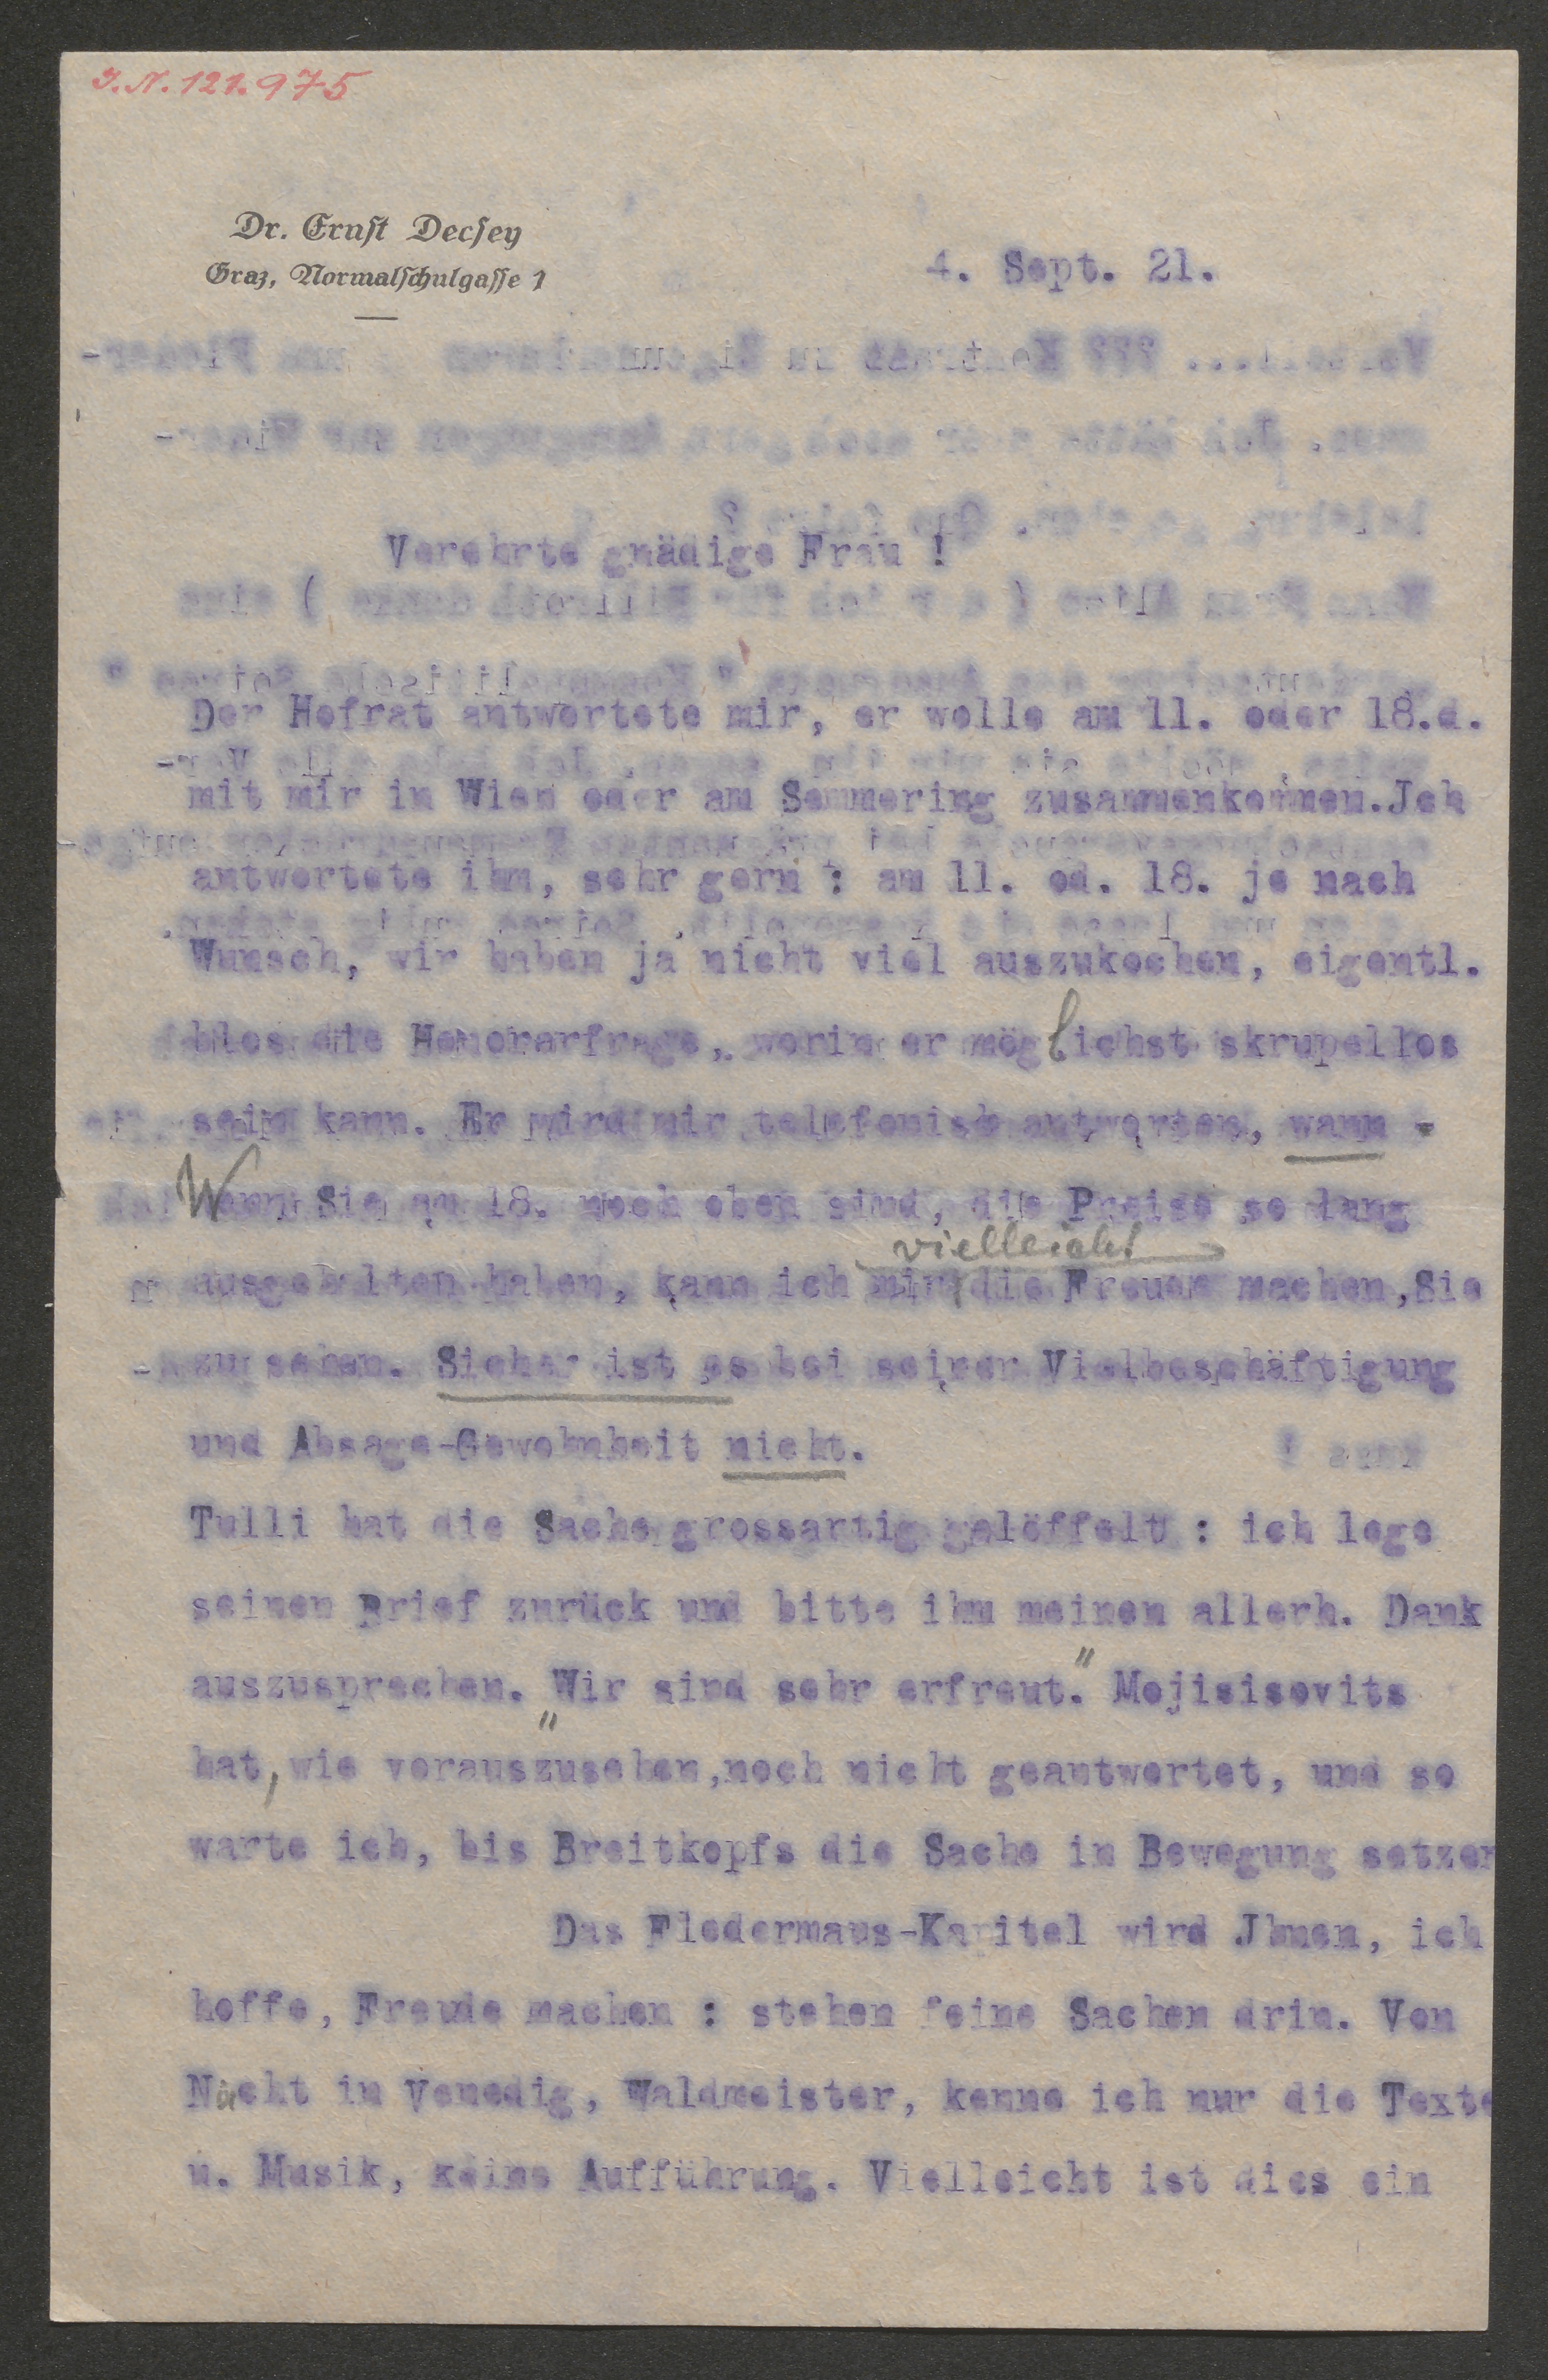 J.N. 121.975
Dr. Ernst Decsey
Graz, Normalschulgasse 1
4. Sept. 21.
Verehrte gnädige Frau !
Der Hofrat antwortete mir, er wolle am 11. oder 18.d.
mit mir in Wien oder am Semmering zusammenkommen.Jch
antwortete ihm, sehr gern : am 11. od. 18. je nach
Wunsch, wir haben ja nicht viel auszukochen, eigentl.
blos die Honorarfrage, worin er möglichst skrupellos
sein kann. Er wird mir telefonisch antworten, wann -
Wenn Sie am 18. noch oben sind, die Preise so lang
vielleicht
ausgehalten haben, kann ich mir die Freuen machen,Sie
zu sehen. Sicher ist es bei seiner Vielbeschäftigung
und Absage-Gewohnheit nicht.
Tulli hat die Sache grossartig gelöffelt : ich lege
seinen Brief zurück und bitte ihm meinen allerh. Dank
auszusprechen. "Wir sind sehr erfreut." Mojisisovits
hat, wie vorauszusehen,noch nicht geantwortet, und so
warte ich, bis Breitkopfs die Sache in Bewegung setzen
Das Fledermaus-Kapitel wird Jhnen, ich
hoffe, Freude machen : stehen feine Sachen drin. Von
Nacht in Venedig, Waldmeister, kenne ich nur die Texte
u. Musik, keine Aufführung. Vielleicht ist dies ein